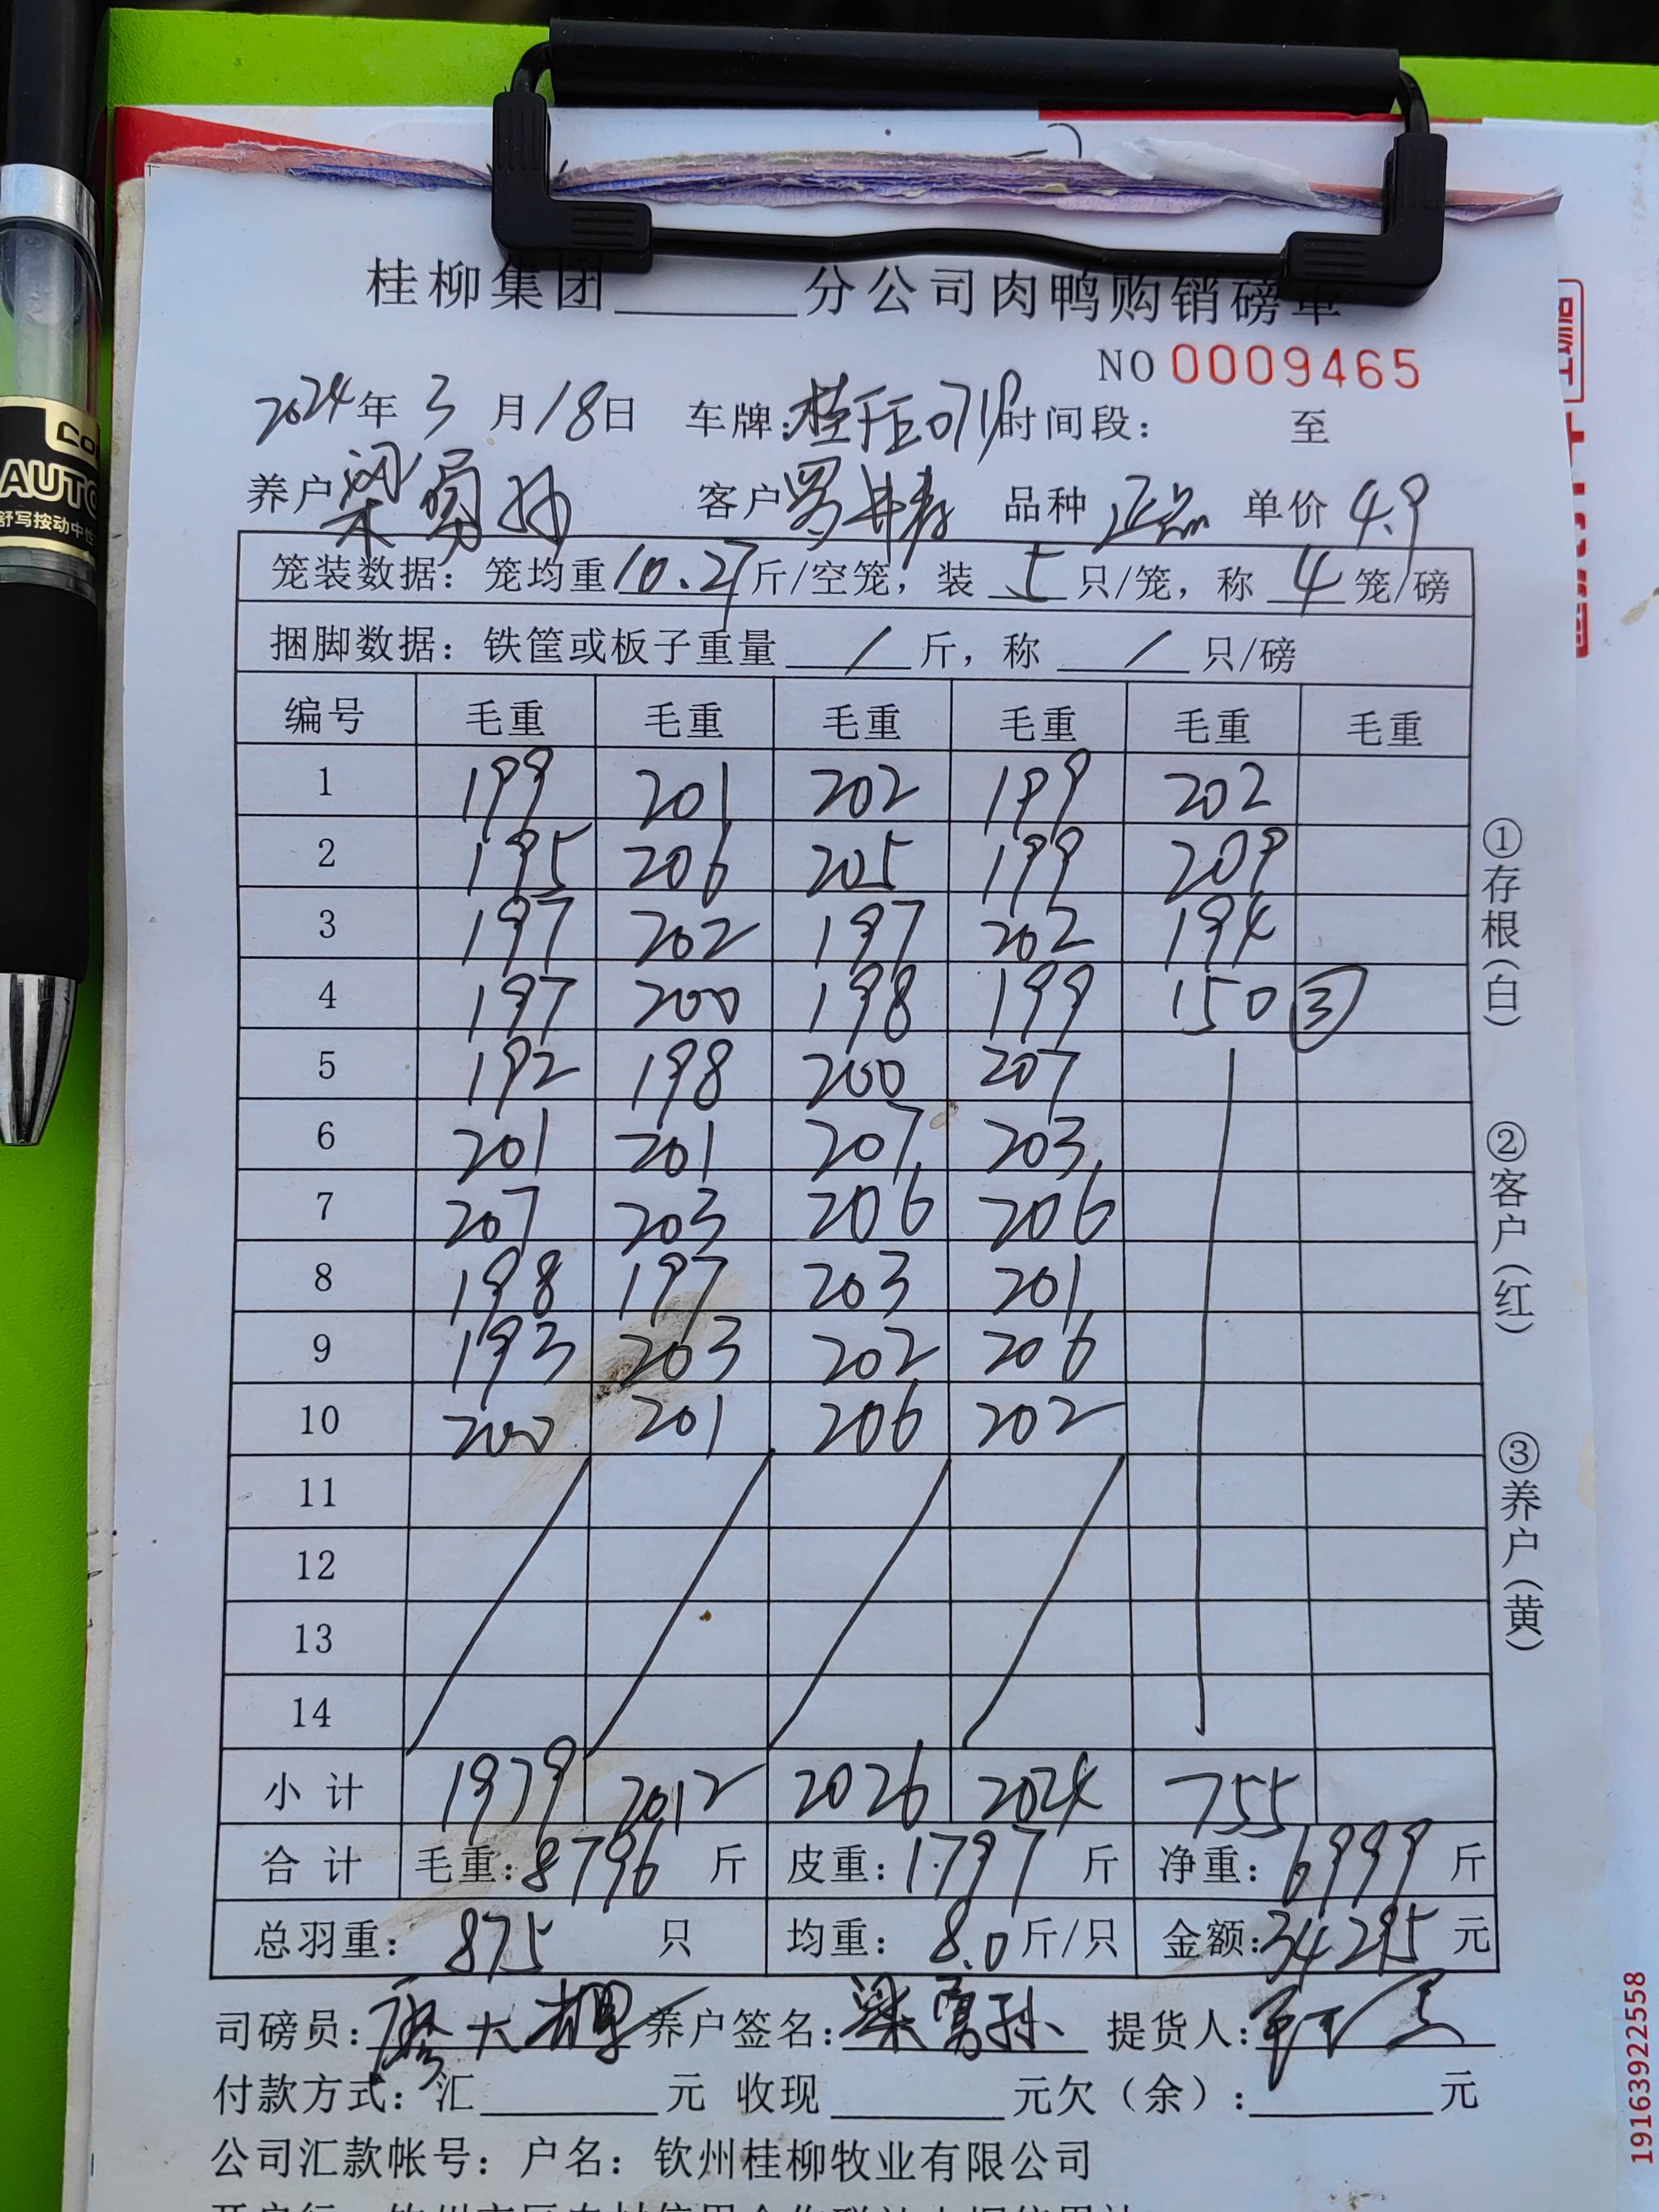 桂柳集团______分公司肉鸭购销磅单
NO 0009465
2024年 3 月 18日 车牌: 时间段: 至
养户 梁富孙 客户 罗 品种 正品 单价 4.9
笼装数据: 笼均重 10.27 斤/空笼, 装 5 只/笼, 称 4 笼/磅
捆脚数据: 铁筐或板子重量 / 斤, 称 / 只/磅
编号 毛重 毛重 毛重 毛重 毛重 毛重
1 199 201 202 199 202
2 195 206 205 199 209
3 197 202 197 202 194
4 197 200 198 199 150 ③
5 192 198 200 207
6 201 201 207 203
7 207 203 206 206
8 198 197 203 201
9 193 203 202 206
10 200 201 206 202
11
12
13
14
小计 1979 2012 2026 2024 755
合计 毛重: 8796 斤 皮重: 1797 斤 净重: 6999 斤
总羽重: 875 只 均重: 8.0 斤/只 金额: 34295 元
司磅员: 养户签名: 梁富孙 提货人:
付款方式: 汇______元 收现______元欠(余):______元
公司汇款帐号: 户名: 钦州桂柳牧业有限公司
①存根(白)
②客户(红)
③养户(黄)
AUTO
舒写按动中性
19163922558